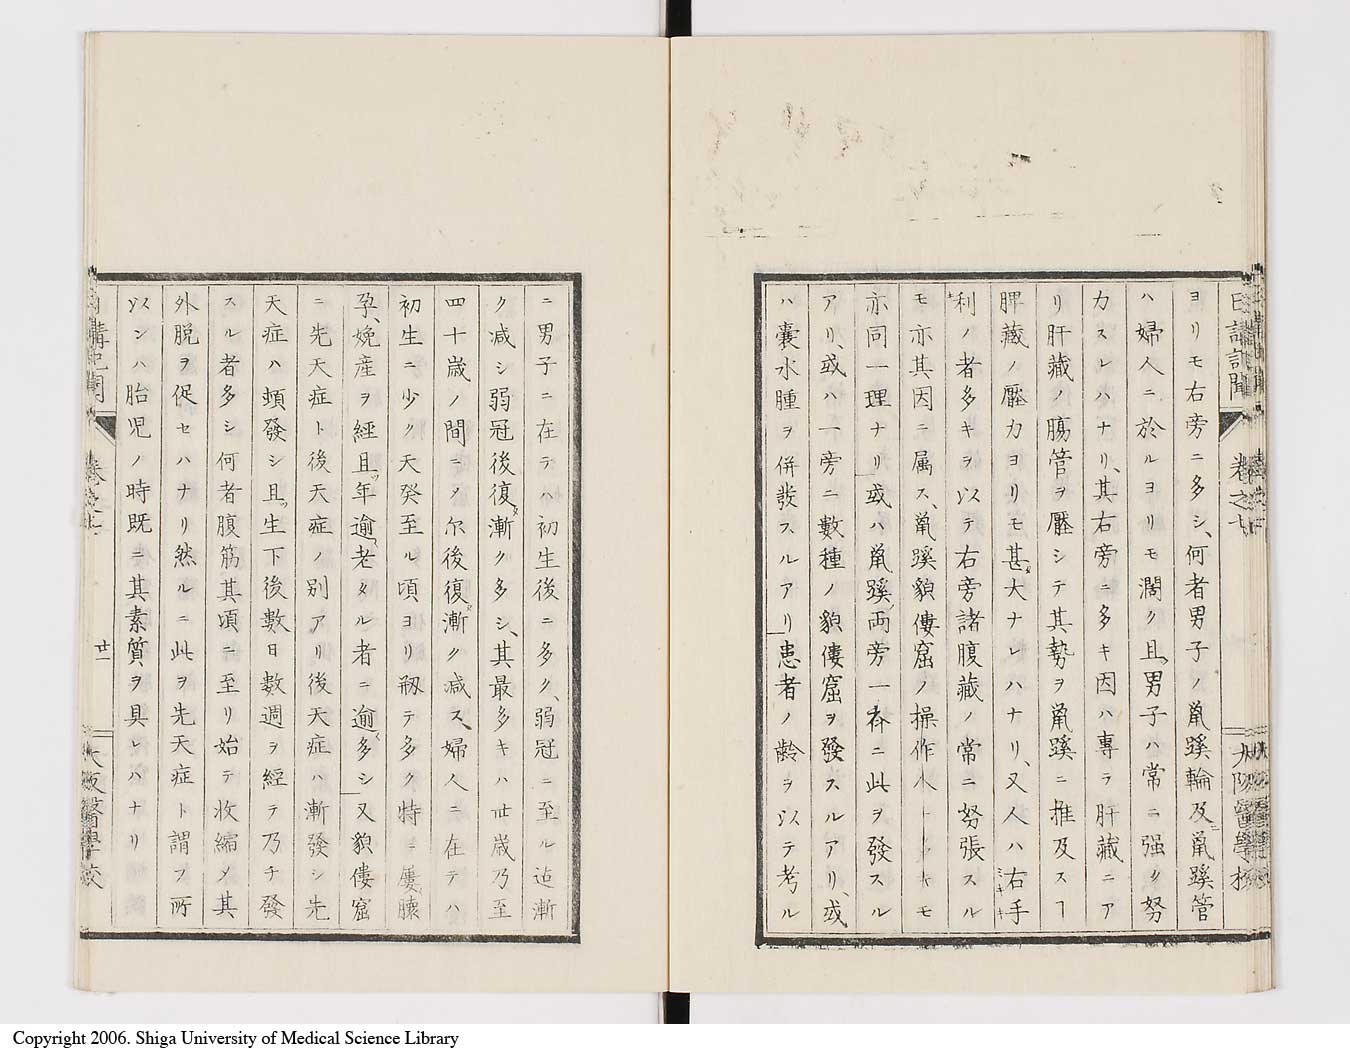 日講記聞
卷之七
大阪醫學校
ヨリモ右旁ニ多シ、何者男子ノ鼠蹊輪及ニ鼠蹊管
ハ婦人ニ於ルヨリモ濶ク且、男子ハ常ニ强ク努
力スレハナリ、其右旁ニ多キ因ハ專ラ肝藏ニア
リ肝藏ノ膓管ヲ壓シテ其勢ヲ鼠蹊ニ推及スヿ
脾藏ノ壓力ヨリモ甚タ大ナレハナリ、又人ハ右手
利ノ者多キヲ以テ右旁諸腹藏ノ常ニ努張スル
モ亦其因ニ属ス、鼠蹊
亦同一理ナリ或ハ鼠蹊両旁一
ニ此ヲ發スル
アリ、或ハ一旁ニ數種ノ
窟ヲ發スルアリ、或
ハ囊水腫ヲ併發スルアリ患者ノ齡ヲ以テ考ル
ニ男子ニ在テハ初生後ニ多ク、弱冠ニ至ル迠漸
ク減シ弱冠後復タ漸ク多シ、其最多キハ卅歳乃至
四十歳ノ間ニメ尓後復タ漸ク減ス、婦人ニ在テハ
初生ニ少ク天癸至ル頃ヨリ
テ多ク特ニ屢
孕、娩産ヲ經且ツ年逾老タル者ニ逾多シ又
窟
ニ先天症ト後天症ノ別アリ後天症ハ漸發シ先
天症ハ頓發シ且ツ生下後數日數週ヲ經テ乃チ發
スル者多シ何者腹筋其頃ニ至リ始テ收縮メ其
外脱ヲ促セハナリ然ルニ此ヲ先天症ト謂フ所
以ンハ胎児ノ時既ニ其素質ヲ具レハナリ
日講記聞
卷之七
廿一
大阪醫學校
Copyright 2006. Shiga University of Medical Science Library